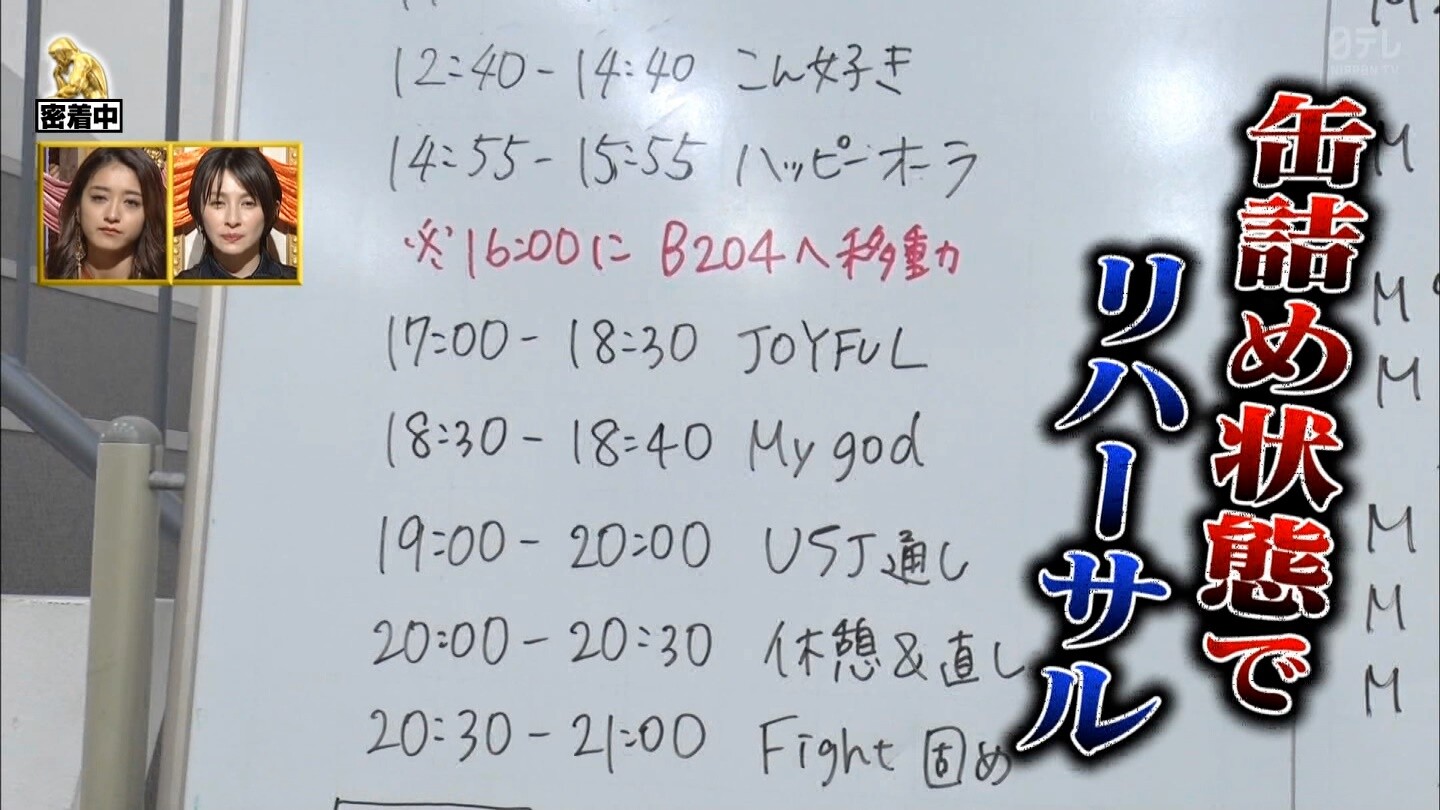 密着中
日テレ
NIPPON TV
缶詰め状態で
リハーサル
12:40 - 14:40 こん好き
14:55 - 15:55 ハッピーオーラ
※16:00に B204へ移動
17:00 - 18:30 JOYFUL
18:30 - 18:40 My god
19:00 - 20:00 USJ通し
20:00 - 20:30 休憩&直し
20:30 - 21:00 Fight 固め
M
M
M
M
M
M